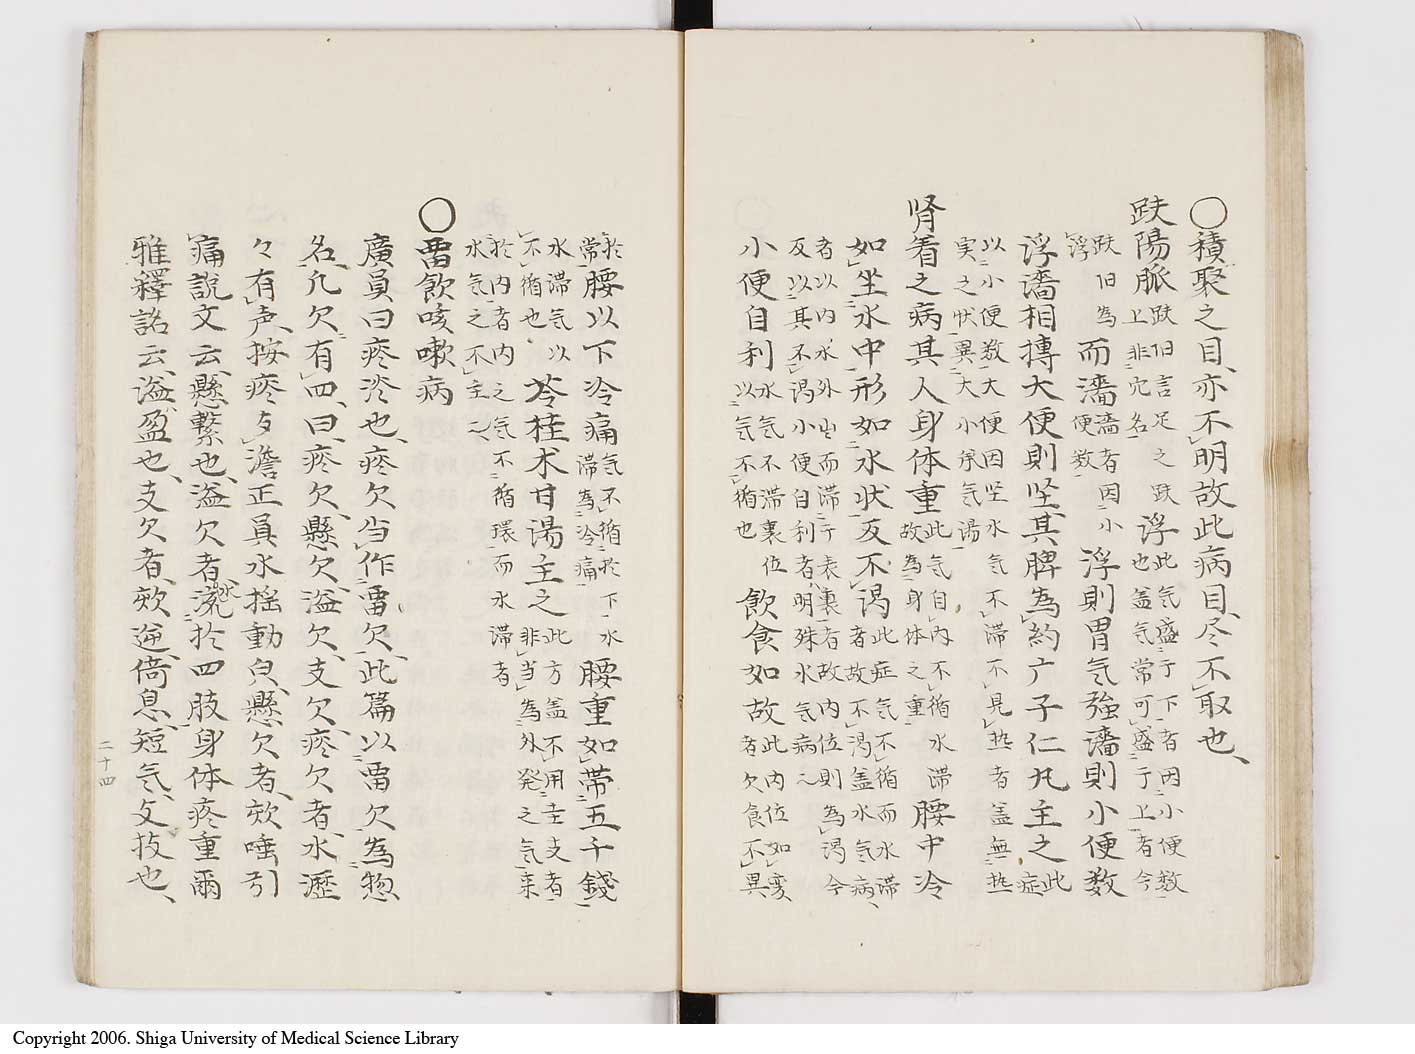 〇積聚之目、亦不明故此病目、尽不取也、
趺陽脈趺旧言足之趺上非穴名浮此气盛于下者因小便数也盖气常可盛于上者今
趺旧為浮而濇濇者因小便数浮則胃气強濇則小便数
浮濇相摶大便則坚其脾為約广子仁丸主之此症
以小便数大便因坚水气不滞不見热者盖無热实之状異大小承气湯
肾着之病其人身体重此气自内不循水滞故為身体之重腰中冷
如坐水中形如水状反不渴此症气不循而水滞者故不渴盖水气病、
者以内水外出而滞于表裏者故内位則為渴今反以其不渴小便自利者明殊水气病之
小便自利水气不滞裏位以气不循也飲食如故此内位如変、者欠食不異
於常腰以下冷痛气不循於下水滞為冷痛腰重如带五千錢
水滞气以不循也苓桂术甘湯主之此方盖不用主支者非当為外発之气来
於内者内之气不循環而水滞者水气之不主之
〇畱飲咳嗽病
廣員曰痰淡也、痰欠当作畱欠、此篇以畱欠為惣
名、凡欠有四、曰、痰欠、懸欠、溢欠、支欠、痰欠者、水瀝
々有声、按痰歹澹正員水揺動皃、懸欠者、欬唾引
痛說文云、懸繋也、溢欠者水流於四肢身体疼重爾
雅釋詁云、溢盈也、支欠者、欬逆倚息、短气、攵技也、
二十四
Copyright 2006. Shiga University of Medical Science Library